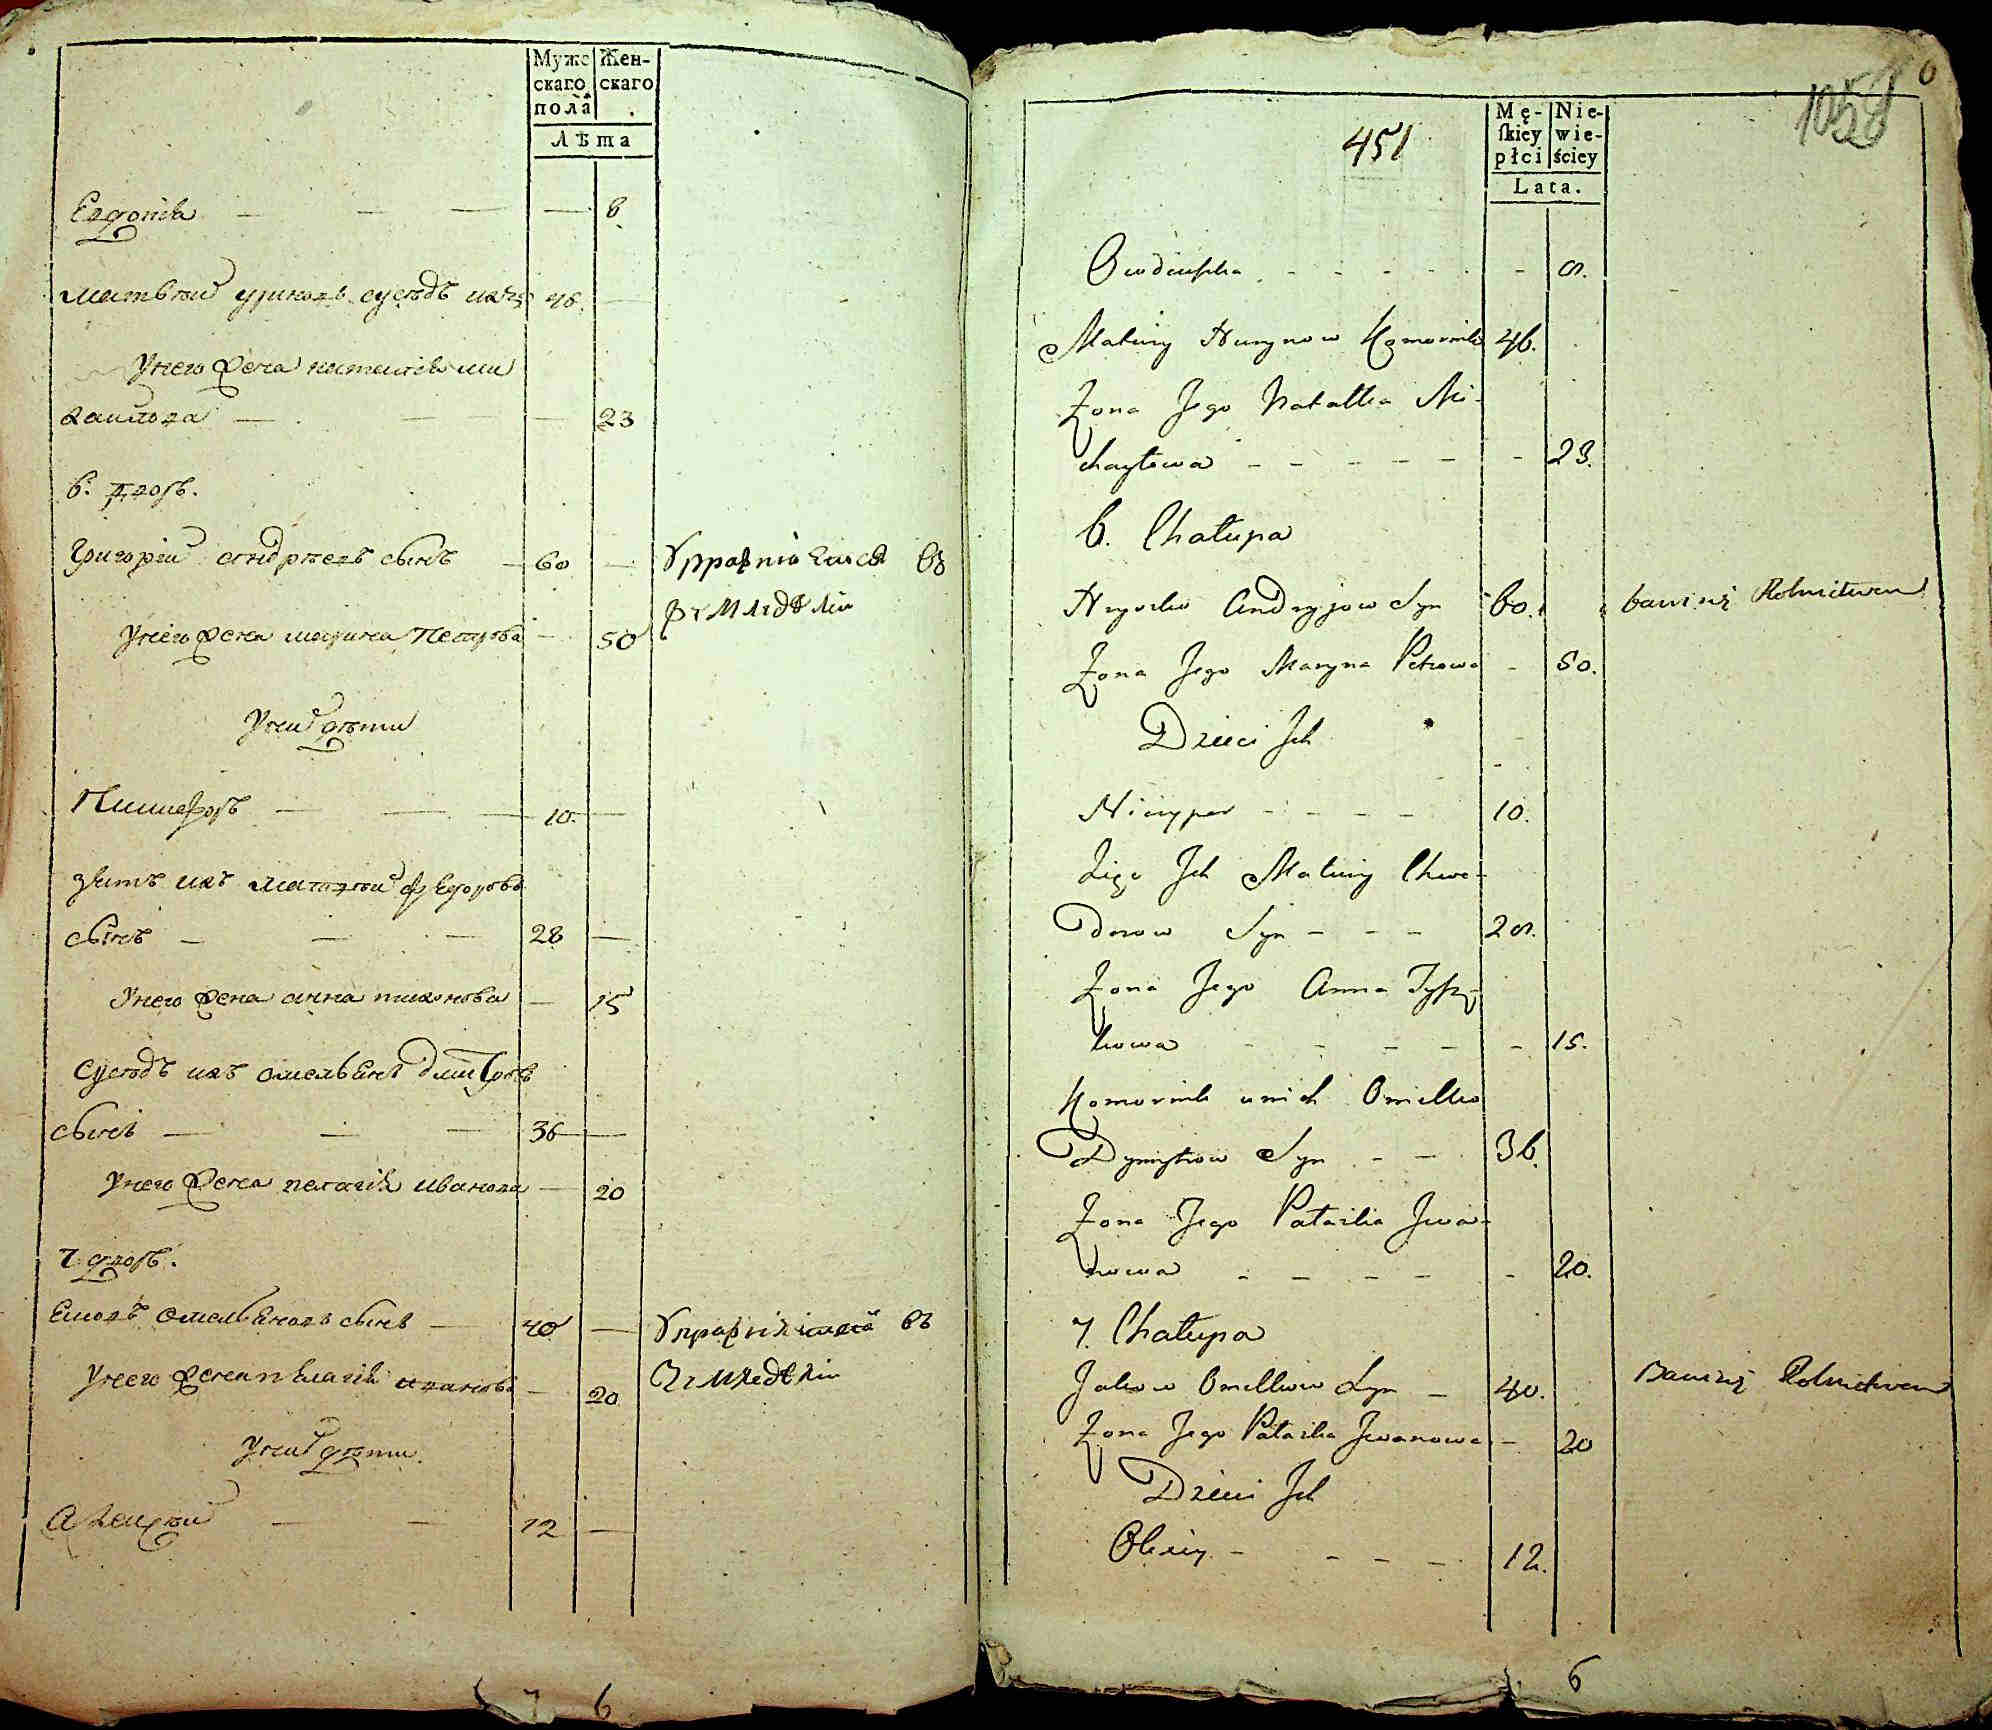 Муже
скаго
пола
Жен-
скаго
Лѣта
8
сусѣдъ ихъ 46.
Унего жена
23
6. дворъ.
Григорій Андрѣевъ сынъ 60 — Упражнѧется въ
земледѣліи
Унего жена марина Петрова — 50
Унихъ дѣти
10. —
зять ихъ матвѣй федоровъ
сынъ — — — 28 —
Унего жена анна — 15
Сусѣдъ ихъ омельянъ дмитровъ
сынъ — — — 36 —
Унего жена пелагія иванова — 20
7. дворъ.
омельяновъ сынъ — 40 — Упражнѧется въ
земледѣліи
Унего жена пелагія иванова — 20
Унихъ дѣти
Алексѣй — — 12 —
6
0
1058
451
Mę-
skiey
płci
Nie-
wie-
ściey
Lata.
- - - - - 8.
Matwiy Komornik 46.
Żona Jego Natalka Mi-
chayłowa - - - - - - 23.
6. Chałupa
Hryćko Andryjow Syn 60. bawi się Rolnictwem
Żona Jego Maryna Petrowa - 50.
Dzieci Ich
Niczypor - - - - 10.
Zięć Ich Matwiy Chwe-
dorow Syn - - - 28.
Żona Jego Anna
kowa - - - - - 15.
Komornik u nich Omelko
Dymytrow Syn - - 36.
Żona Jego Patazka Jwa-
nowa - - - - - 20.
7. Chałupa
Jakow Omelkow Syn - 40. Bawi się Rolnictwem
Żona Jego Patazka Jwanowa - 20
Dzieci Ich
Olexiy - - - - 12.
6